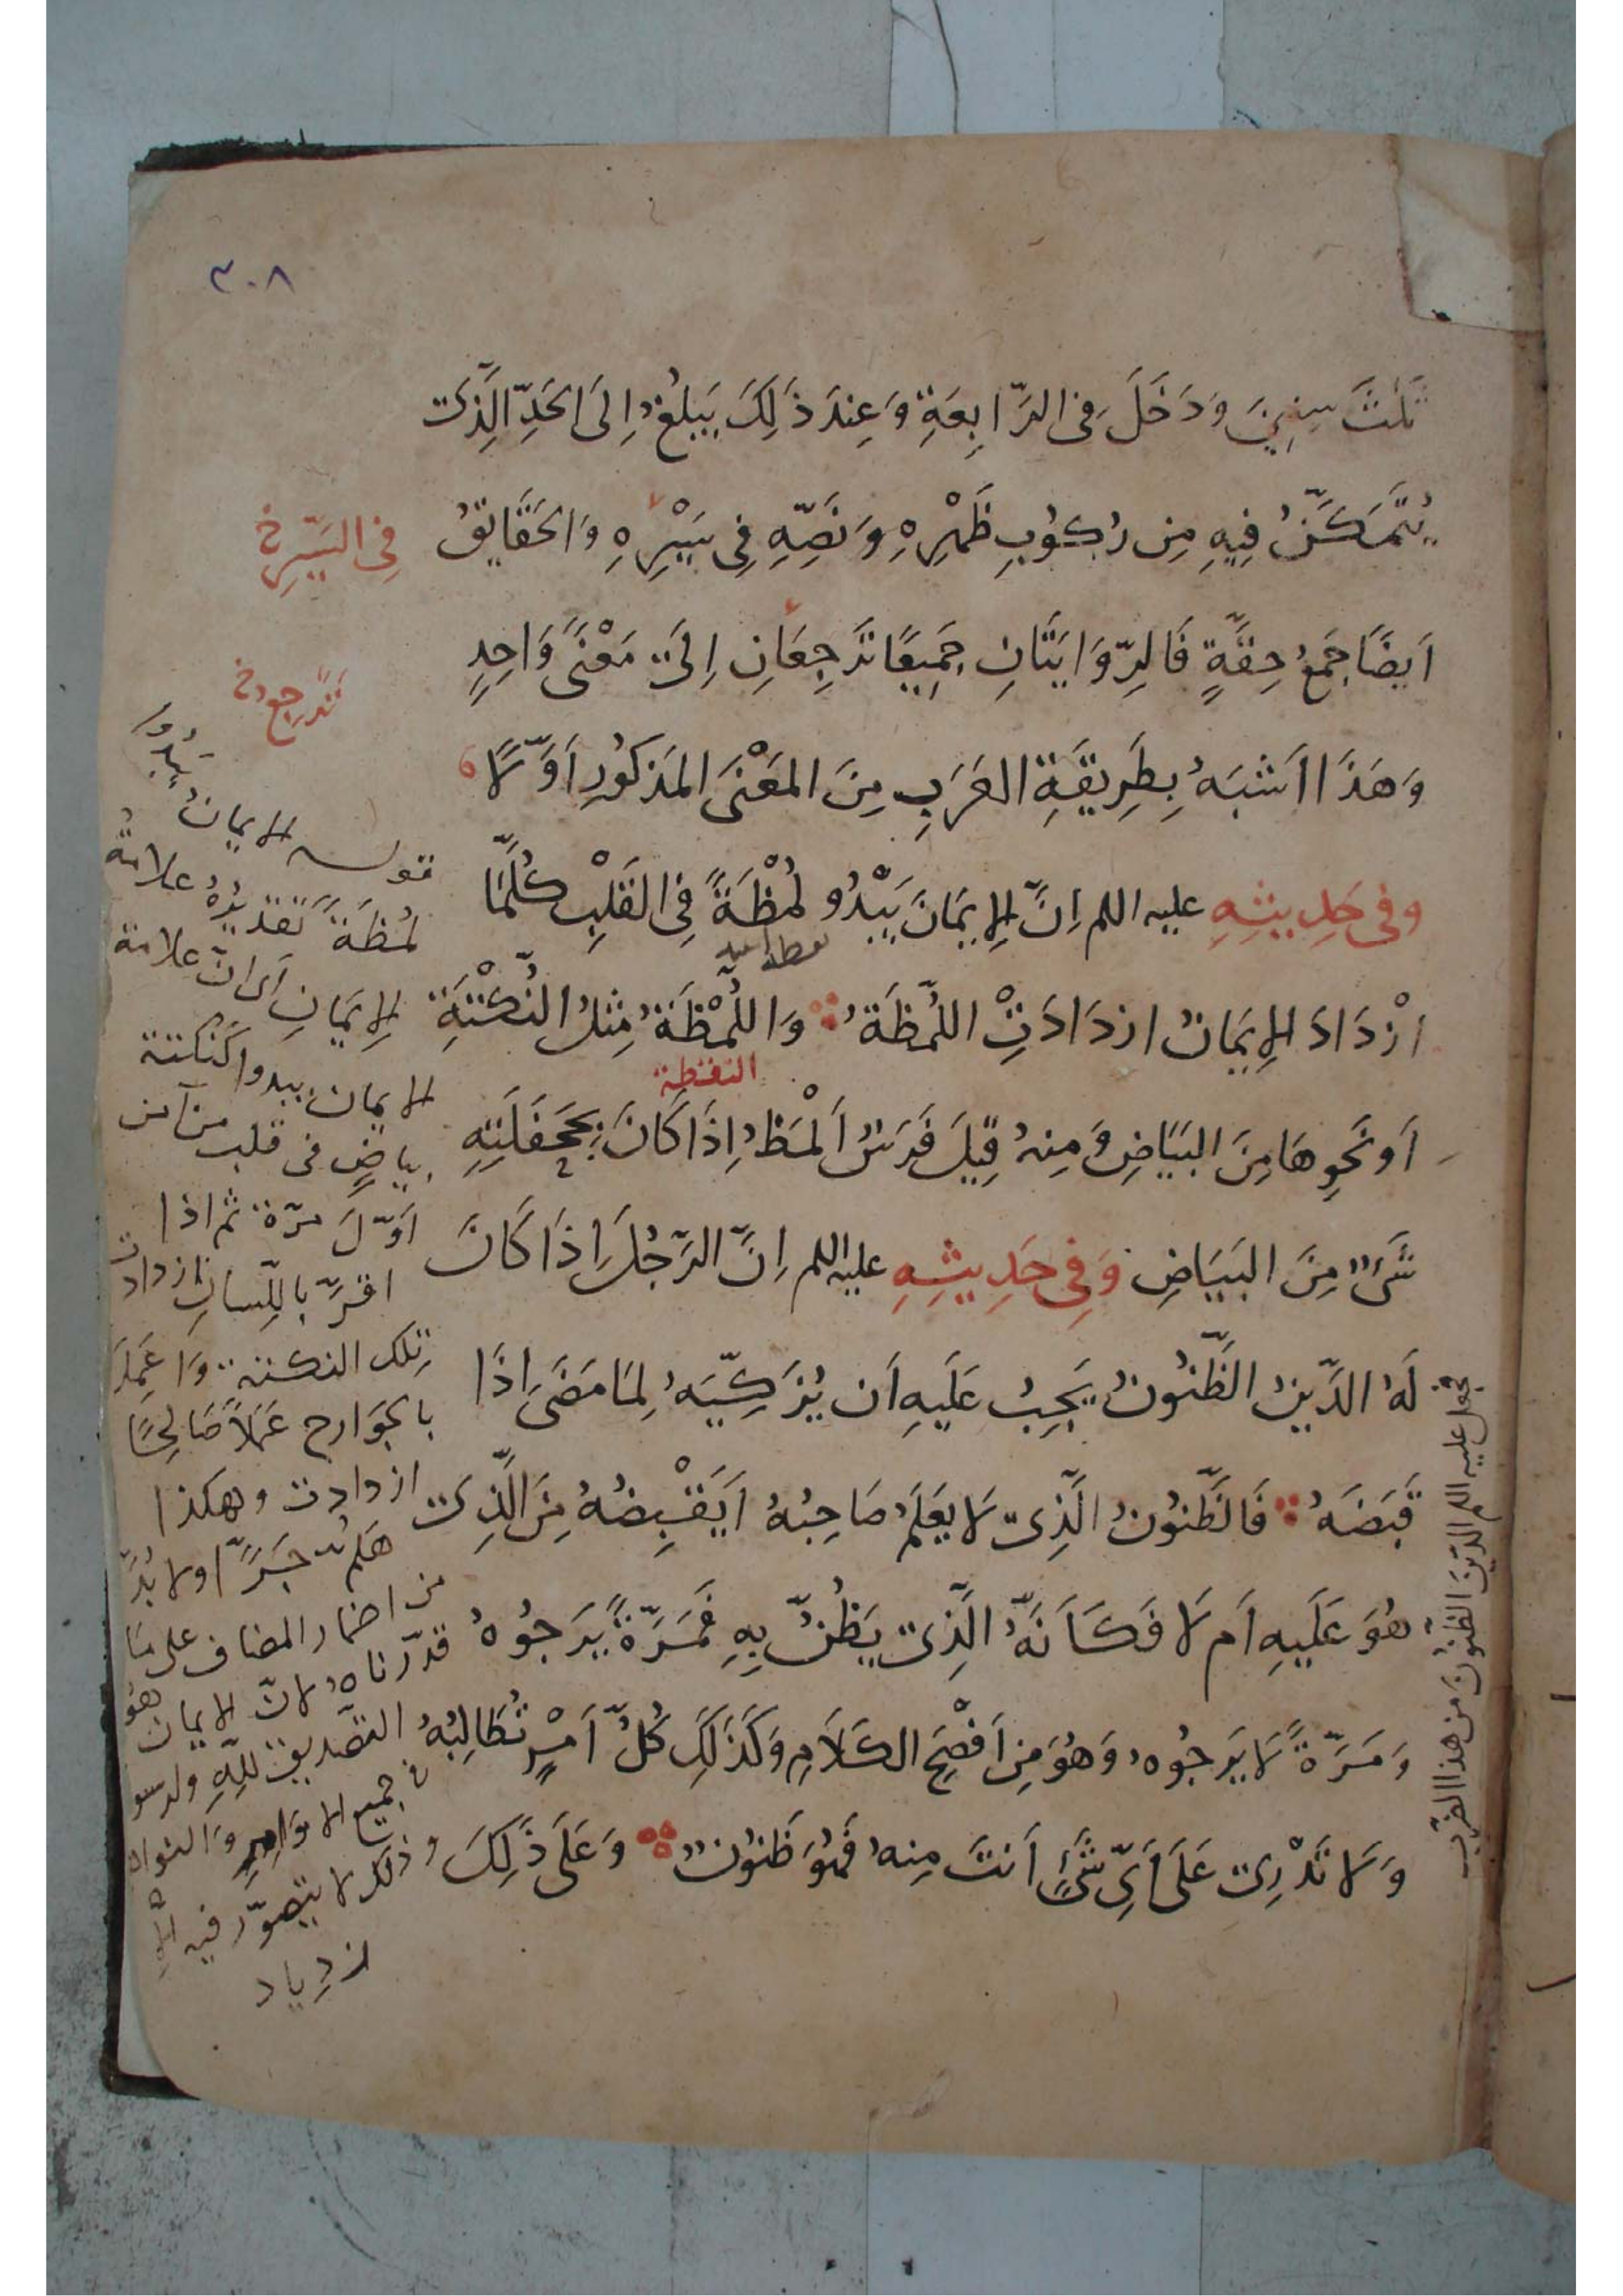 ٣٠٨
ثَلٰثَ سِنِينَ وَدَخَلَ فِى الرَّابِعَةِ وَعِندَ ذَلِكَ يَبلُغُ اِلَى الحَدِّ الَّذِى
يُتَمَكَّنُ فِيهِ مِن رُكُوبِ ظَهْرِهِ وَنَصِّهِ فِى سَيْرِهِ وَالحَقَايِقُ
فِى السَّيرِ خ
اَيضًا جَمعُ حِقَّةٍ فَالرِّوَايَتَانِ جَمِيعًا تَرجِعَانِ اِلَى مَعْنًى وَاحِدٍ
وَهَذَا اَشبَهُ بِطَرِيقَةِ العَرَبِ مِنَ المَعْنَى المَذكُورِ اَوَّلًا
وفى حَدِيثِهِ عليه اللم اِنَّ الإِيمَانَ يَبْدُو لُمْظَةً فِى القَلْبِ كُلَّمَا
ازْدَادَ الإِيمَانُ ازدَادَتِ اللُّمظَةُ وَاللُّمْظَةُ مِثلُ النُّكْتَةِ
النقطة
اَو نَحوِهَا مِنَ البَيَاضِ وَمِنهُ قِيلَ فَرَسٌ اَلْمَظُ اِذَا كَانَ بِجَحفَلَتِهِ
شَىءٌ مِنَ البَيَاضِ وَفِى حَدِيثِهِ عليه اللم اِنَّ الرَّجُلَ اِذَا كَانَ
لَهُ الدَّينُ الظَّنُونُ يَجِبُ عَلَيهِ اَن يُزَكِّيَهُ لِمَا مَضَى اِذَا
قَبَضَهُ فَالظَّنُونُ الَّذِى لَا يَعلَمُ صَاحِبُهُ اَيَقْبِضُهُ مِنَ الَّذِى
هُوَ عَلَيهِ اَم لَا فَكَاَنَّهُ الَّذِى يَظُنُّ بِهِ فَمَرَّةً يَرجُوهُ
وَمَرَّةً لَا يَرجُوهُ وَهُوَ مِن اَفْصَحِ الكَلَامِ وَكَذَلِكَ كُلُّ اَمْرٍ تُطَالِبُهُ
وَلَا تَدْرِى عَلَى اَىِّ شَىءٍ اَنتَ مِنهُ فَهُوَ ظَنُونٌ وَعَلَى ذَلِكَ
قوله الايمانُ يَبْدُوا
لُمظَةً تقديرُهُ علامةُ
الإيمَانِ اى انّ علامة
الايمان يبدوا كنكتة
بياضٍ فى قلب من آمن
اَوّلَ مرّة ثم اذا
اقرّ باللّسانِ ازدادت
تِلك النكتة وَاذا عَمِلَ
بالجَوارح عَمَلاً صَالِحًا
ازدادت وهكذا
هَلُمَّ جَرًّا ولا بُدَّ
من اضمار المضاف على مَا
قدّرناهُ لانّ الايمان هُو
التصديق للّهِ ولرسو
فى جميع الاوَامِرِ وَالنواه
وذلك لا يتصوّر فيه الا
ازدياد
جعل عليه اللم الدّين الظنُونَ من هذا الضرب